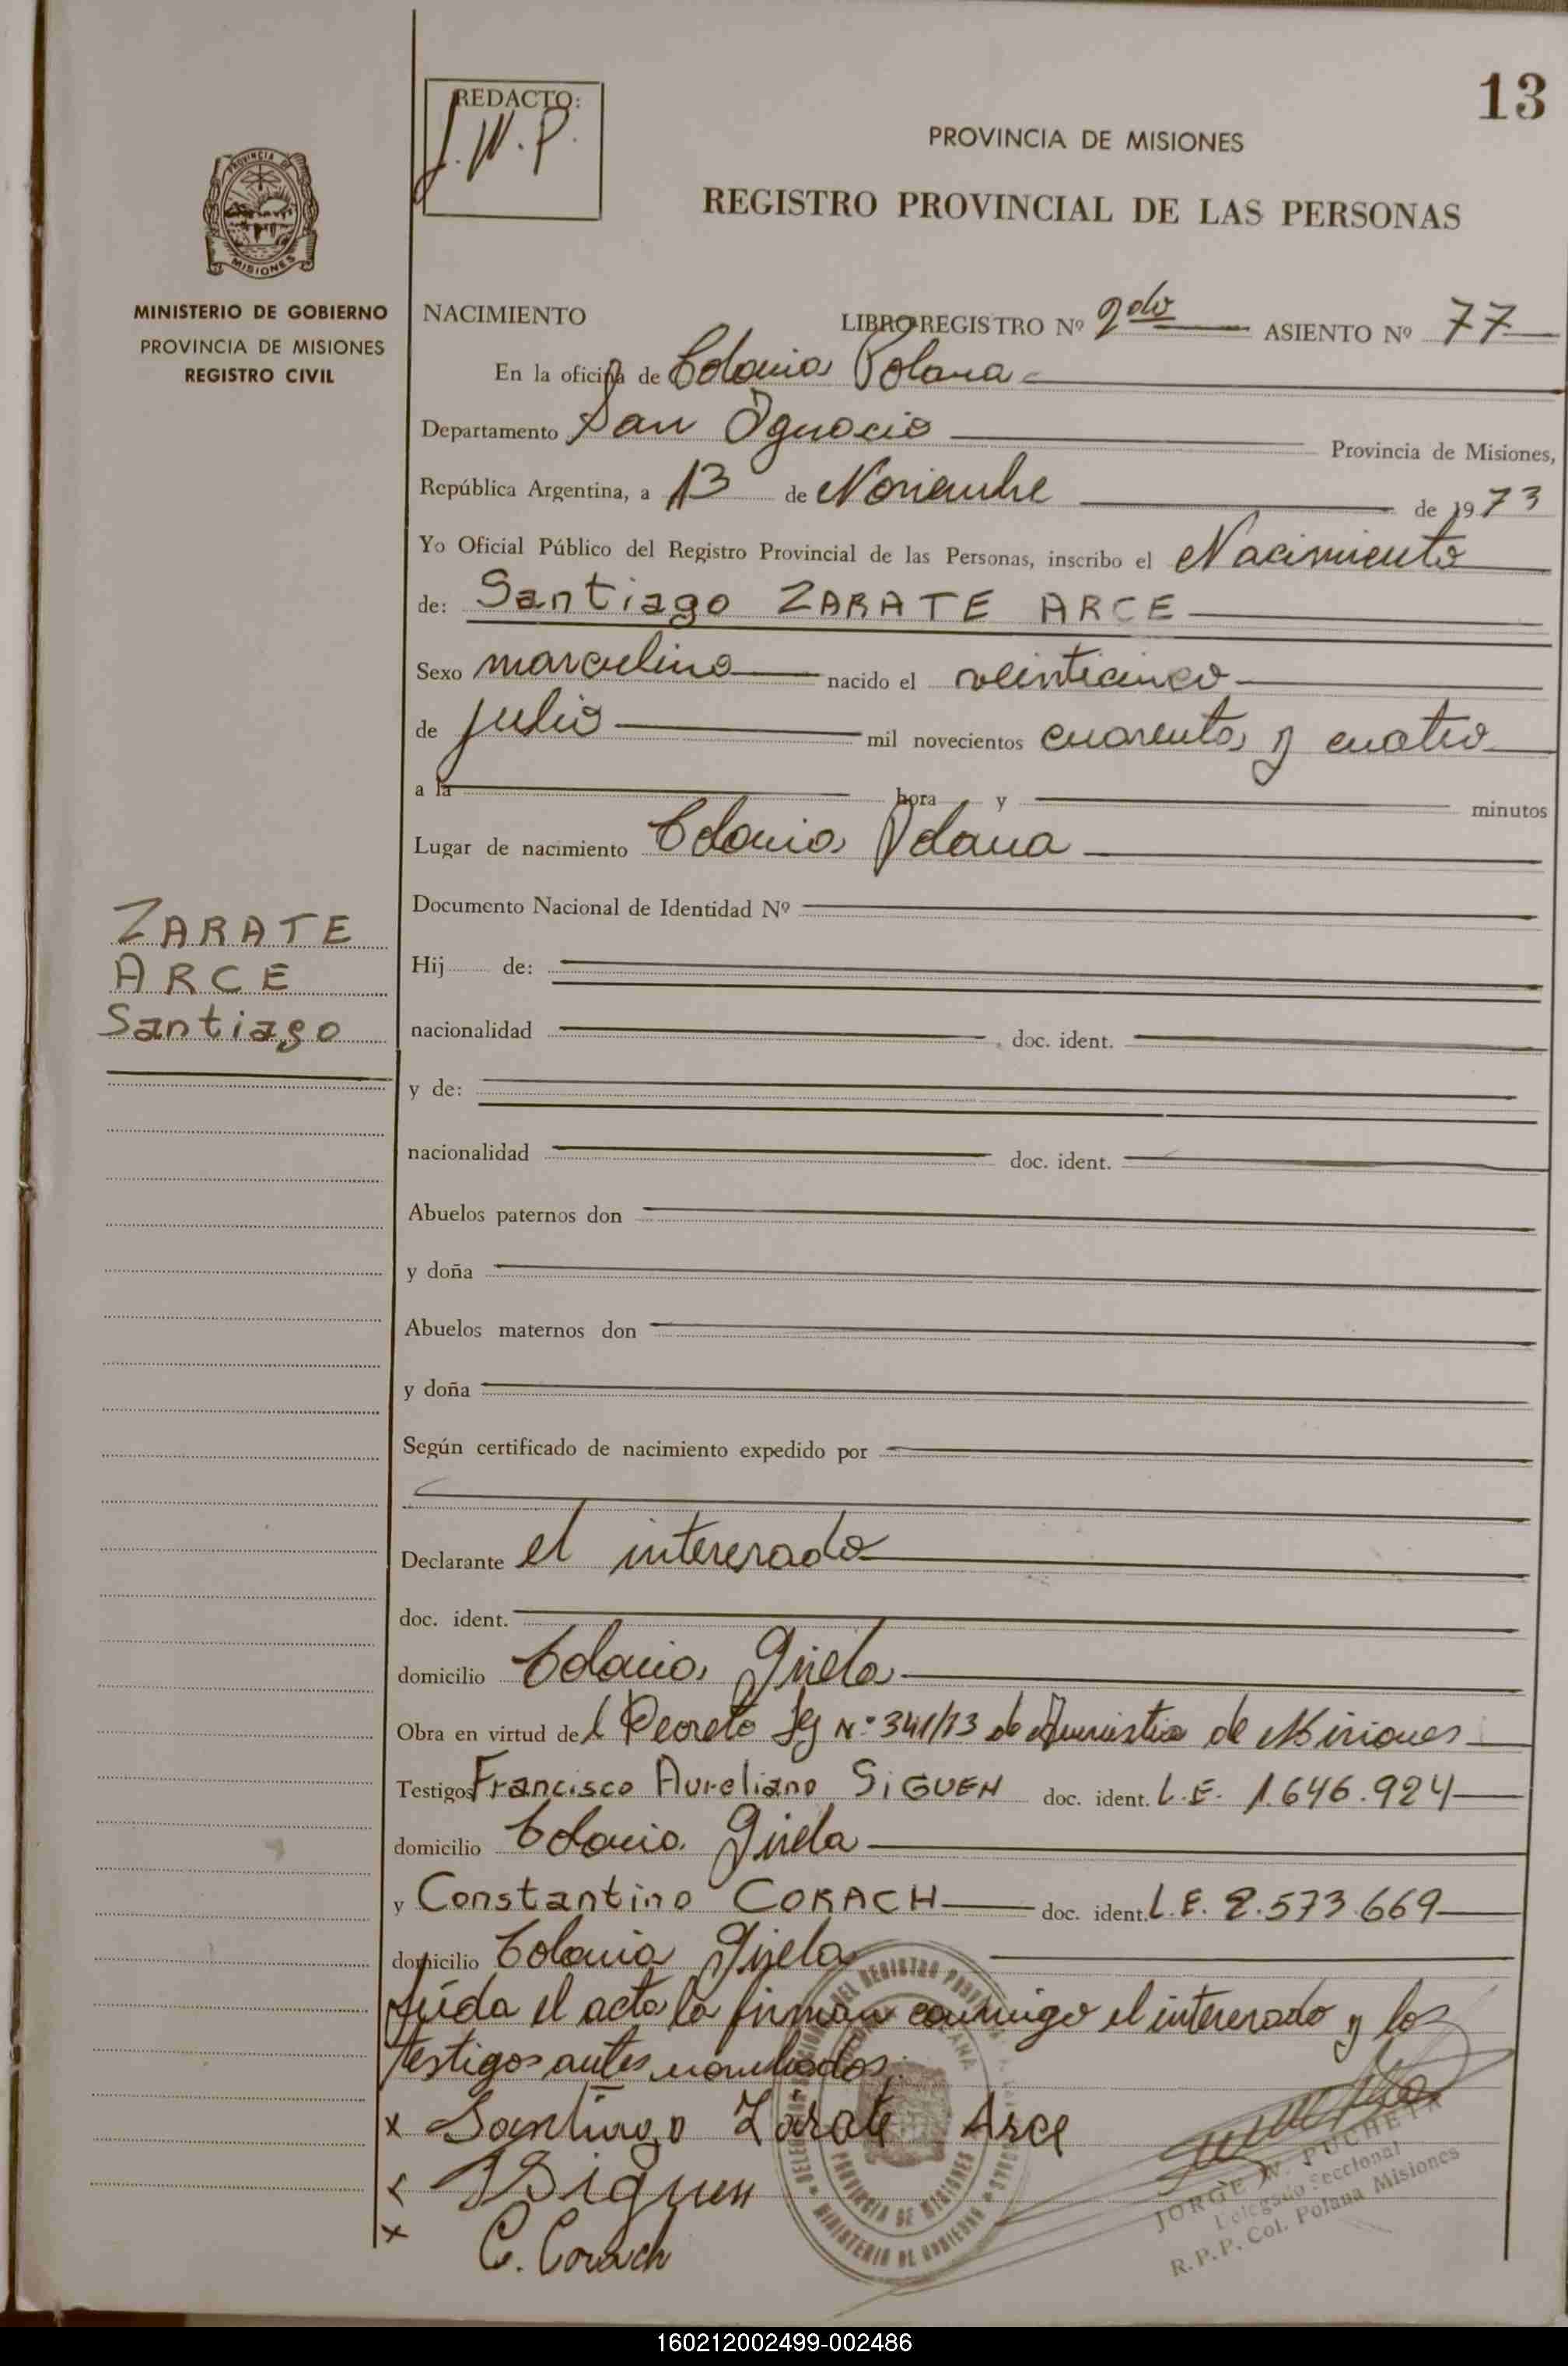 13
REDACTO:
J.W.P.
PROVINCIA DE MISIONES
REGISTRO PROVINCIAL DE LAS PERSONAS
PROVINCIA DE
MISIONES
MINISTERIO DE GOBIERNO
PROVINCIA DE MISIONES
REGISTRO CIVIL
NACIMIENTO LIBRO REGISTRO Nº 2do ASIENTO Nº 77
En la oficina de Colonia Polana
Departamento San Ignacio Provincia de Misiones,
República Argentina, a 13 de Noviembre de 1973
Yo Oficial Público del Registro Provincial de las Personas, inscribo el Nacimiento
de: Santiago ZARATE ARCE
Sexo masculino nacido el veinticinco
de julio mil novecientos cuarenta y cuatro
a la hora y minutos
Lugar de nacimiento Colonia Polana
Documento Nacional de Identidad Nº
ZARATE
ARCE
Santiago
Hij de:
nacionalidad doc. ident.
y de:
nacionalidad doc. ident.
Abuelos paternos don
y doña
Abuelos maternos don
y doña
Según certificado de nacimiento expedido por
Declarante el interesado
doc. ident.
domicilio Colonia Gisela
Obra en virtud del Decreto Ley Nº 341/73 de Amnistia de Misiones
Testigos Francisco Aureliano SIGUEN doc. ident. L.E. 1.646.924
domicilio Colonia Gisela
y Constantino CORACH doc. ident. L.E. 2.573.669
domicilio Colonia Gisela
Leida el acta la firman conmigo el interesado y los
testigos antes nombados.
x Santiago Zárate Arce
x Siguen
x C. Corach
PROVINCIA DE MISIONES
MINISTERIO DE GOBIERNO
JORGE W. PUCHETA
Delegado Seccional
R.P.P. Col. Polana Misiones
160212002499-002486